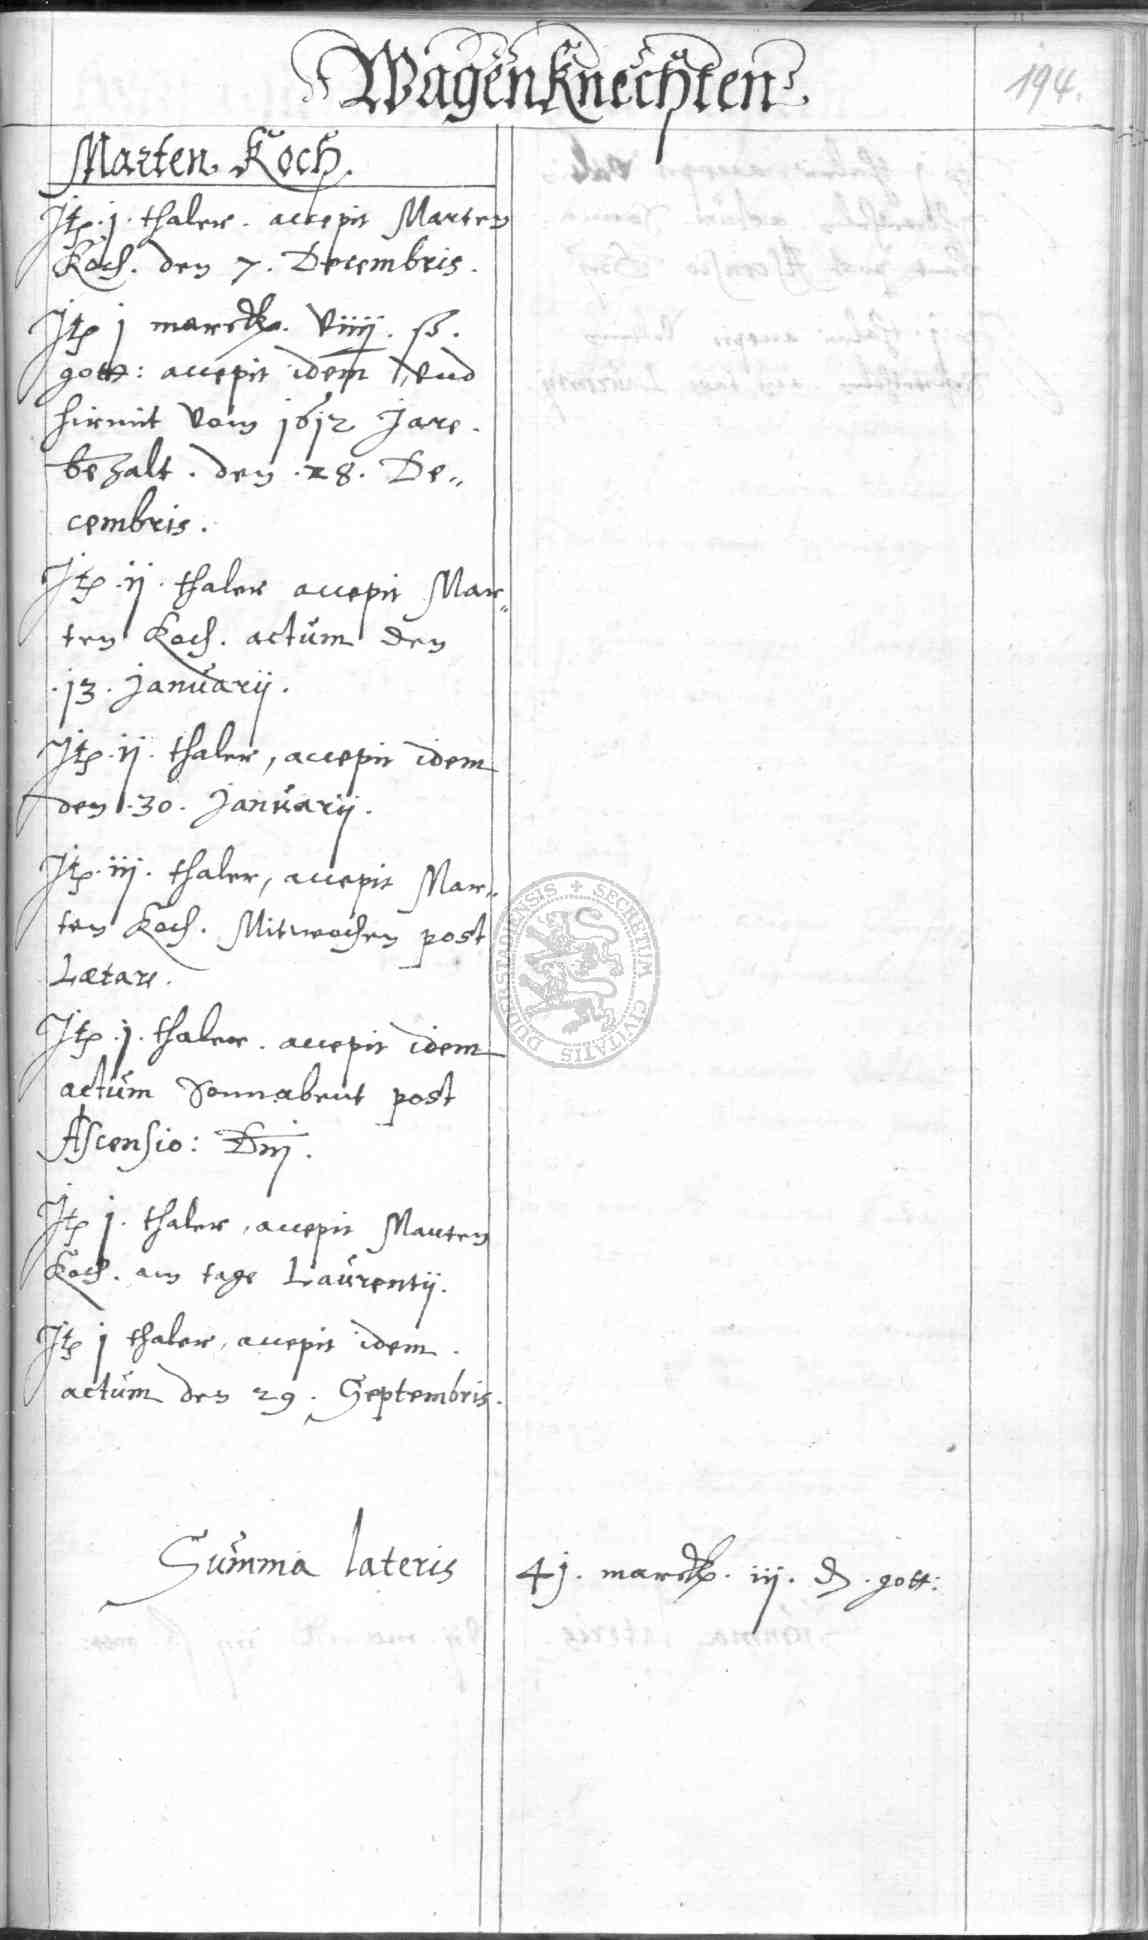 Wagenknechten
194.
Marten Koch.
Itp. j. thaler. accepit Marten
Koch. den 7. Decembris.
Itp j marck. viiij. ß.
gott: accepit idem, vnd
hirmit vom 1612 Jare.
bezalt. den .28. De„
cembris.
Itp. ij. thaler accepit Mar„
ten Koch. actum den
.13. Januarij.
Itp. ij. thaler, accepit idem
den .30. Januarij.
Itp. iij. thaler, accepit Mar„
ten Koch. Mitwochen post
Lætare.
Itp. j. thaler. accepit idem
actum Sonnabent post
Ascensio: Dnj.
Itp j. thaler, accepit Marten
Koch. am tage Laurentij.
Itp j thaler, accepit idem.
actum den 29. Septembris.
Summa lateris 4j. marck. iij. ₰. gott:
SECRETUM CIVITATIS DUDERSTADIENSIS +